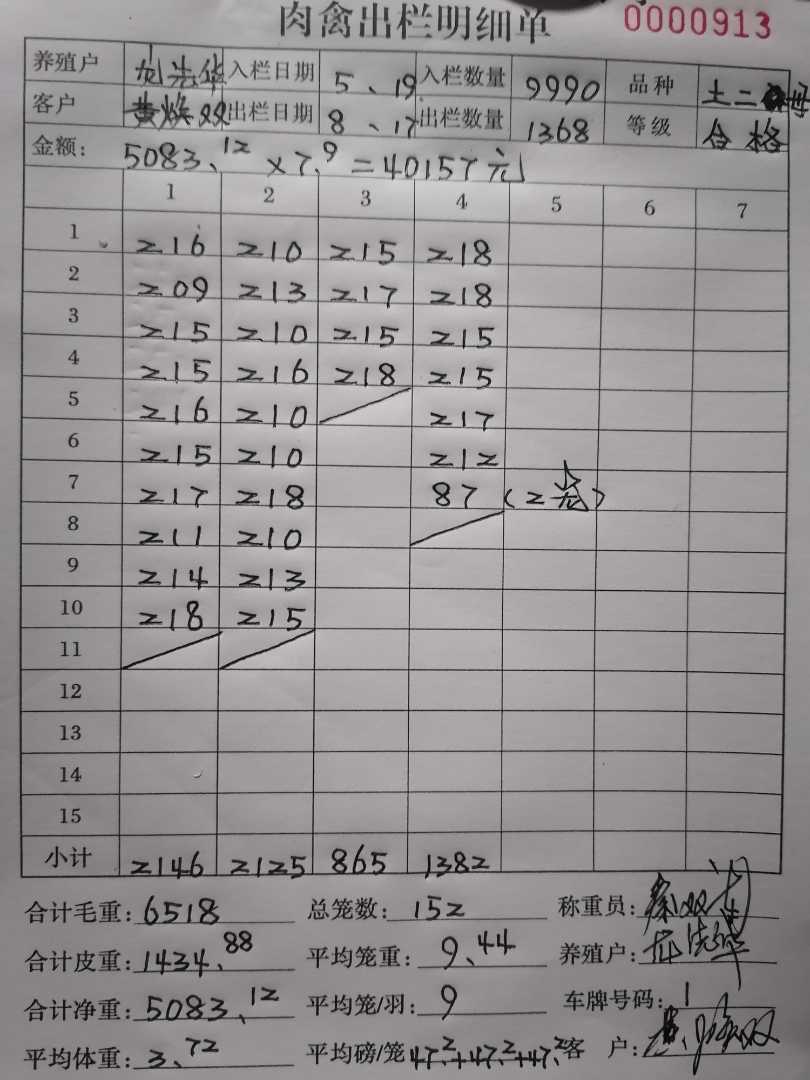 肉禽出栏明细单 0000913
养殖户 龙法华 入栏日期 5、19 入栏数量 9990 品种 土二 母
客户 黄焕双 出栏日期 8、17 出栏数量 1368 等级 合格
金额: 5083.12×7.9=40157元
1 2 3 4 5 6 7
1 216 210 215 218
2 209 213 217 218
3 215 210 215 215
4 215 216 218 215
5 216 210 217
6 215 210 212
7 217 218 87 (2笼)
8 211 210
9 214 213
10 218 215
11
12
13
14
15
小计 2146 2125 865 1382
合计毛重: 6518 总笼数: 152 称重员:
合计皮重: 1434.88 平均笼重: 9.44 养殖户: 龙法华
合计净重: 5083.12 平均笼/羽: 9 车牌号码: 1
平均体重: 3.72 平均磅/笼 47.2+47.2+47.2 客户: 黄焕双